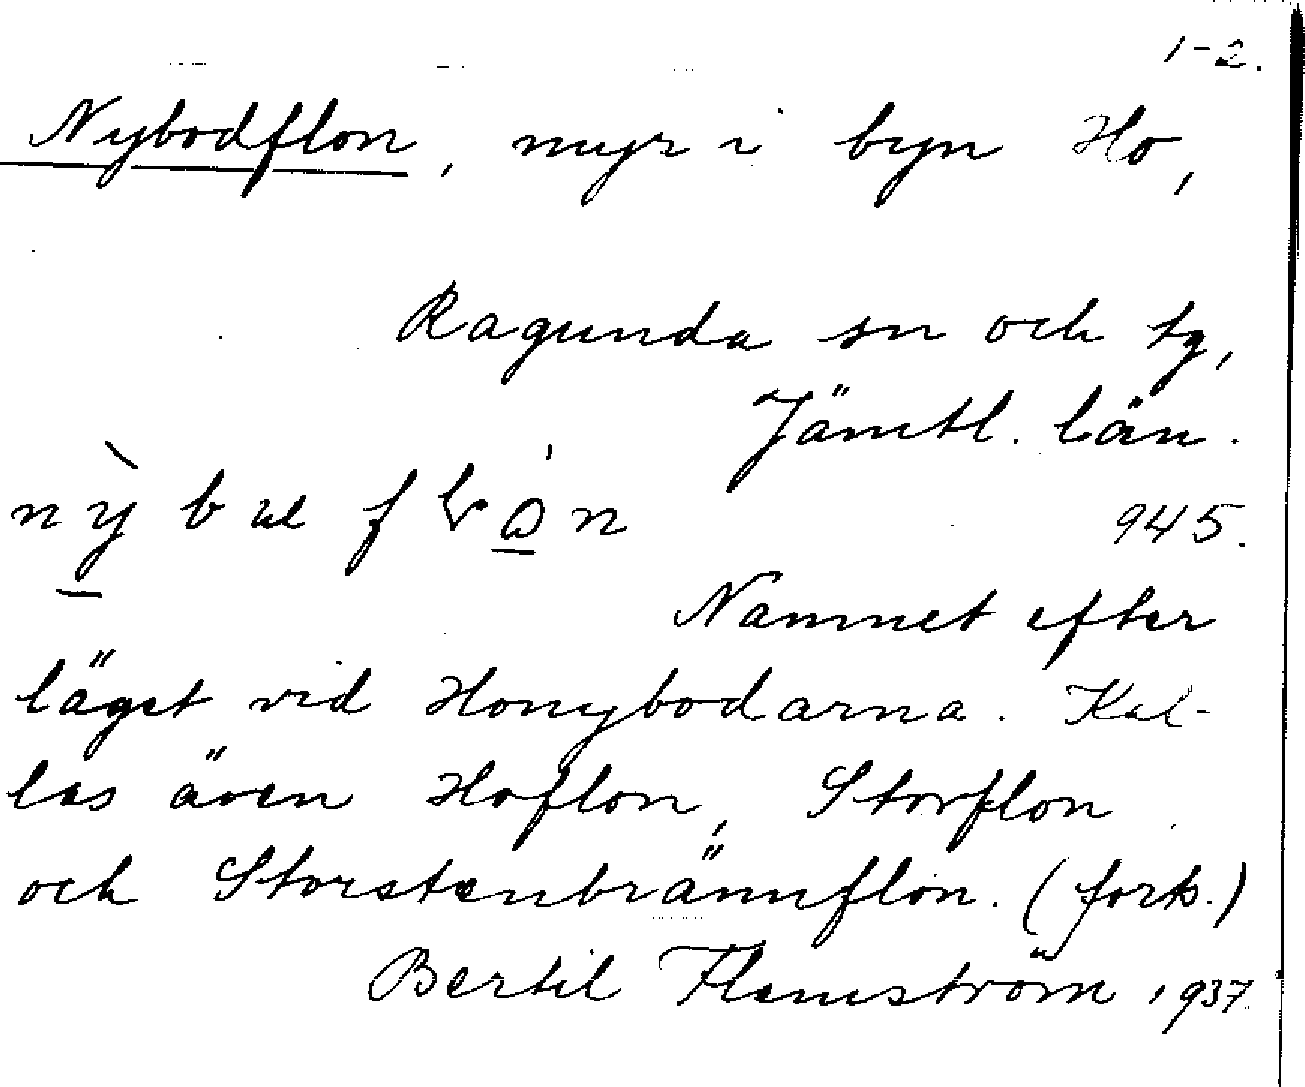 1-2.
Nybodflon, myr i byn Ho,
Ragunda sn och tg,
Jämtl. län.
945.
Namnet efter
läget vid Honybodarna. Kal-
las även Hoflon, Storflon
och Storstenbrännflon. (forts.)
Bertil Flemström 1937